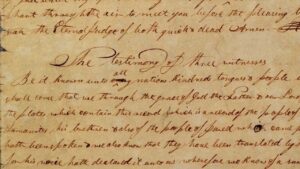 phant through the air to meet you before the pleasing
vah the eternal judge of both quick & dead Amen
The Testimony of three witnesses
Be it known unto all nations kindred tongues & people
shall come that we through the grace of God the Father & our Lor
the plates which contain this record which is a record of the people of
Lamanites his brethren & also of the people of Jared which came
hath been spoken & we also know that they have been translated by
for his voice hath declared it unto us wherefore we know of a